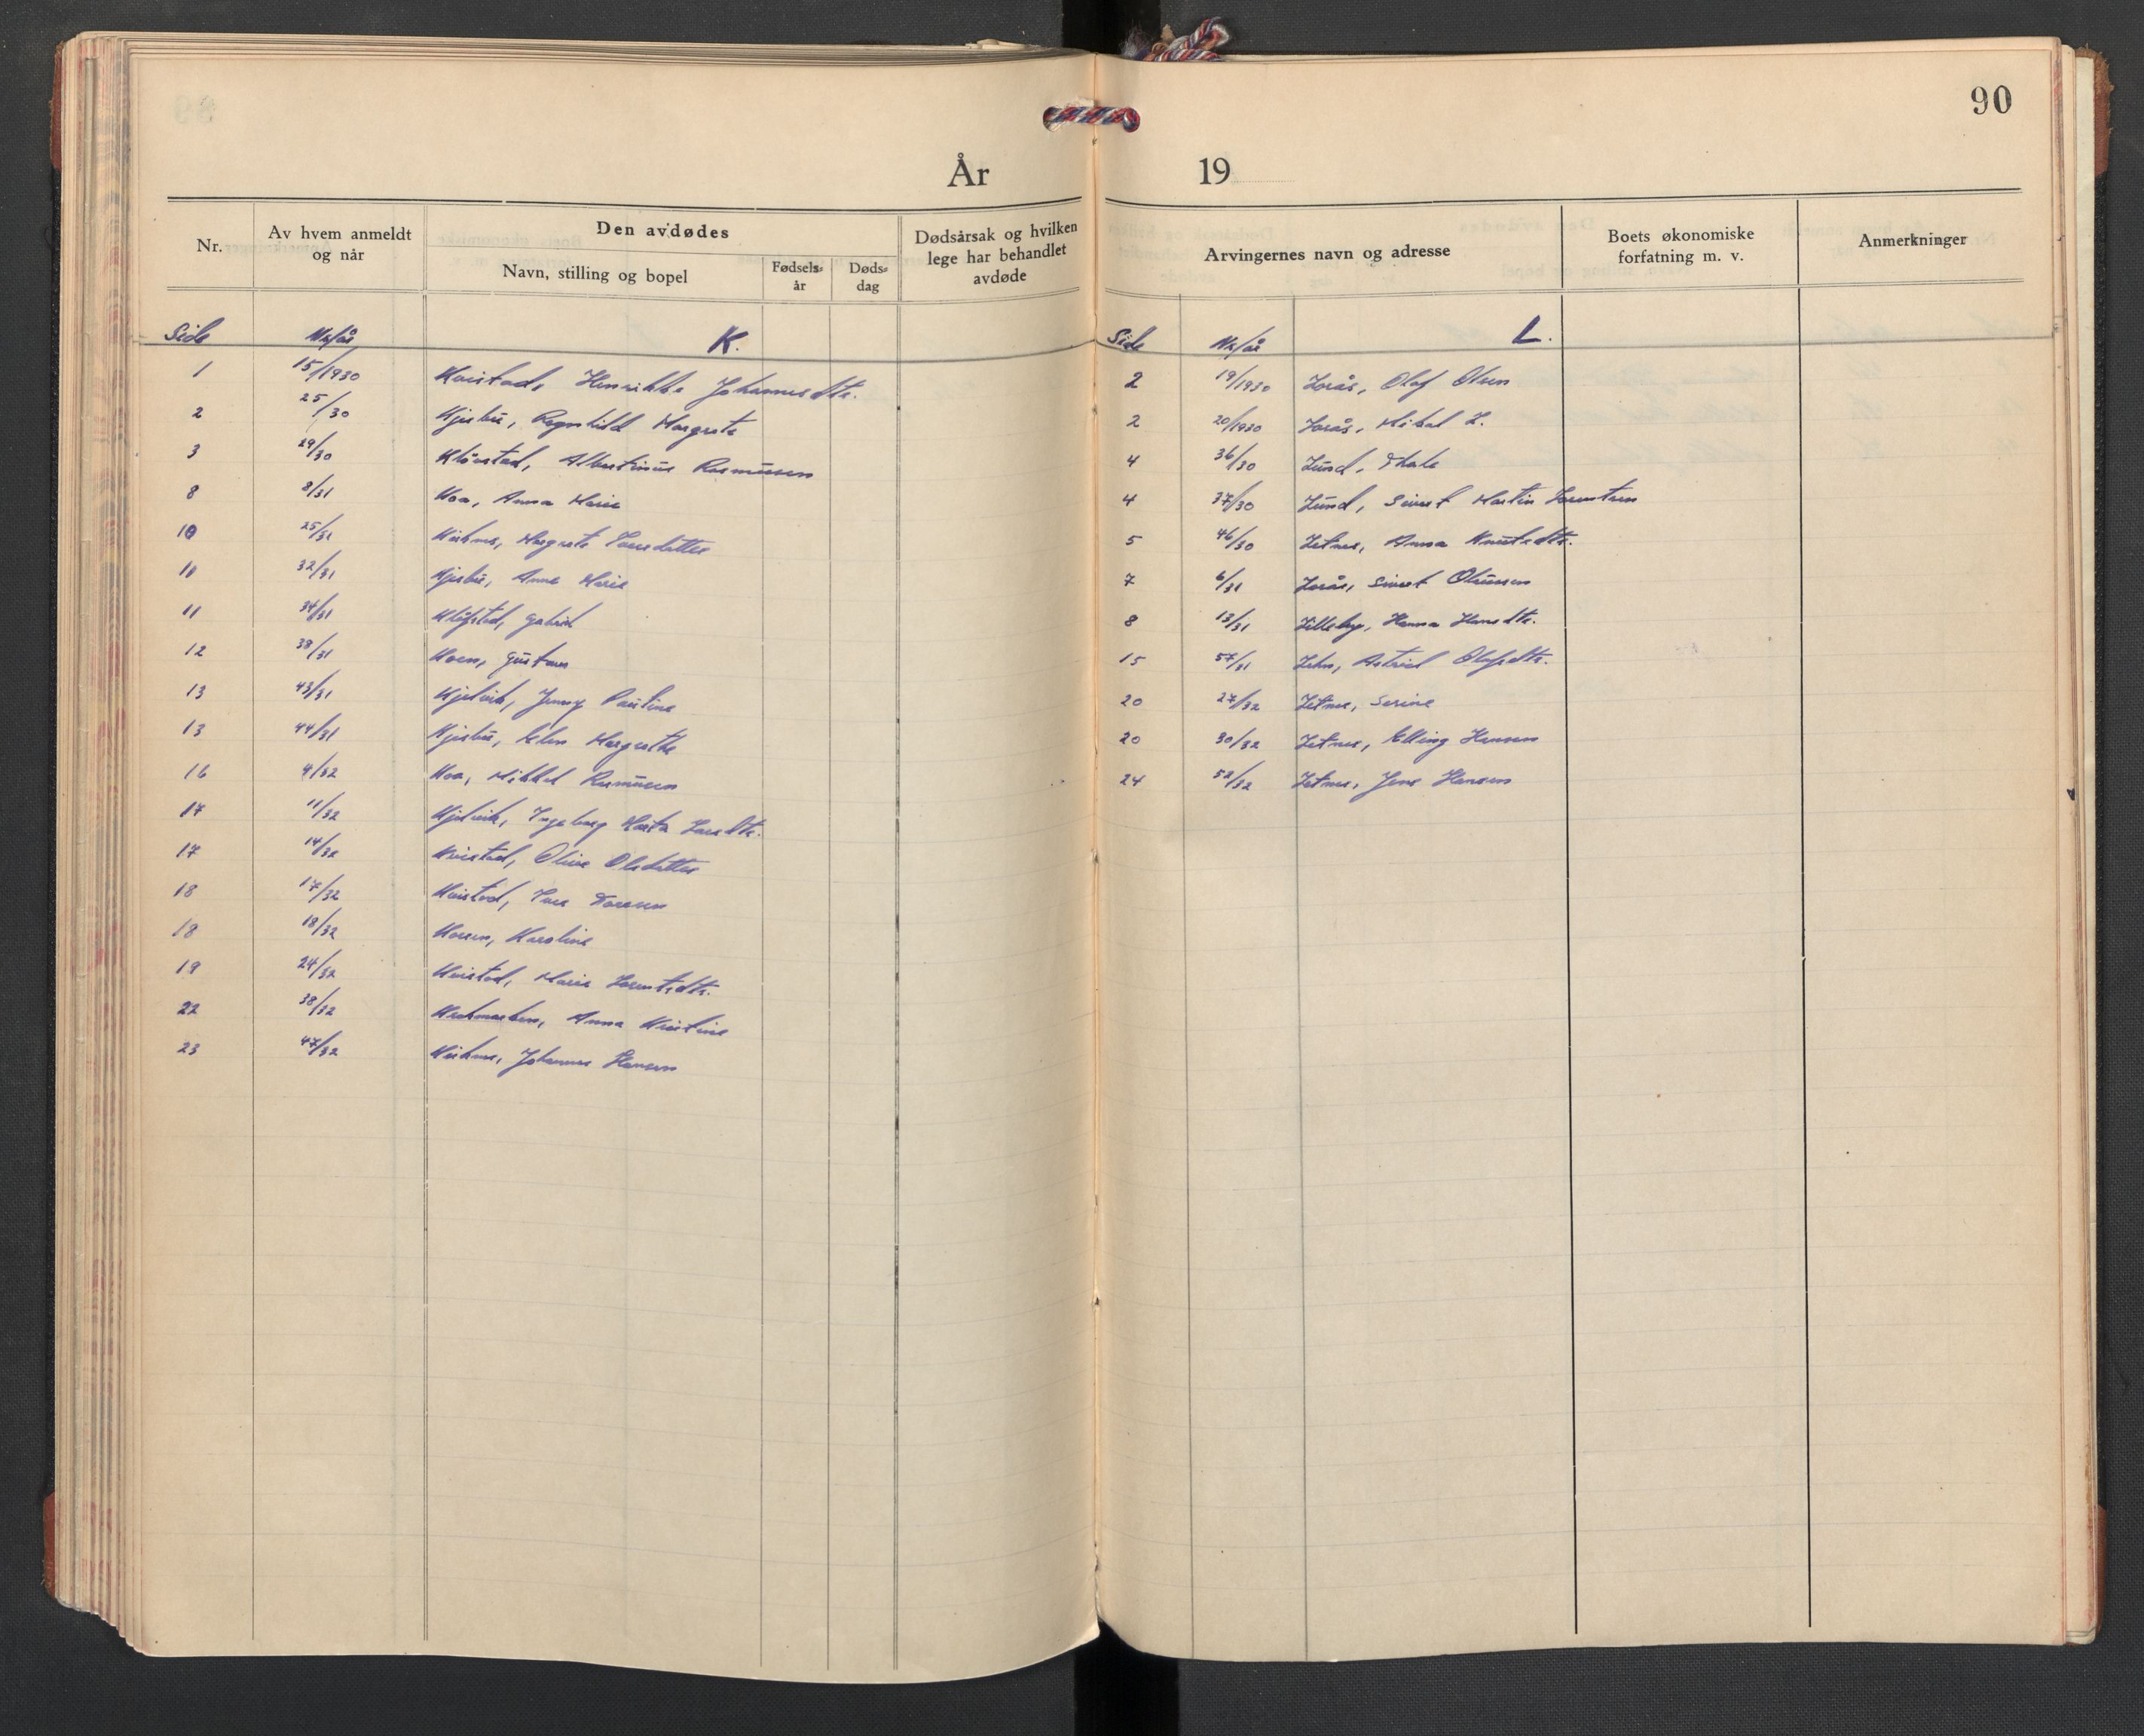 90
År 19
Nr.
Av hvem anmeldt
og når
Den avdødes
Navn, stilling og bopel
Fødsels-
år
Døds-
dag
Dødsårsak og hvilken
lege har behandlet
avdøde
Side Nr/år K.
1 15/1930 Kvistad, Henrikke Johannesdtr.
2 25/30 Kjesbu, Ragnhild Margrete
3 29/30 Kløvstad, Albertinus Rasmussen
8 8/31 Koa, Anna Marie
10 25/31 Margrete Larsdatter
10 32/31 Kjesbu, Anne Marie
11 34/31 Gabriel
12 38/31 Koen, Gustav
13 43/31 Kjelvik, Jenny Pauline
13 44/31 Kjesbu, Elen Margrethe
16 4/32 Koa, Mikkel Rasmusen
17 11/32 Kjelvik, Ingeborg Marta
17 14/32 Kvistad, Oline Olsdatter
18 17/32 Kvistad,
18 18/32 Karoline
19 24/32 Kvistad, Marie Lorentsdtr.
22 38/32 Anna Kristine
23 47/32 Johannes Hansen
Arvingernes navn og adresse
Boets økonomiske
forfatning m. v.
Anmerkninger
Side Nr/år L.
2 19/1930 Lorås, Olaf Olsen
2 20/1930 Lorås, Mikal L.
4 36/30 Lund, Thale
4 37/30 Lund, Sivert Martin Lorentsen
5 46/30 Letnes, Anna Knutsdtr.
7 6/31 Lorås, Sivert
8 13/31 Lilleby, Hanna Hansdtr.
15 57/31 Lehn, Astrid Olafsdtr.
20 27/32 Letnes, Serine
20 30/32 Letnes, Elling Hansen
24 52/32 Letnes, Jens Hansen